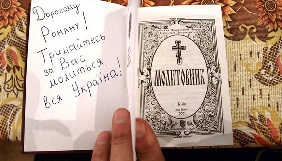 Дорогому
Роману!
Тримайтесь
за Вас
молиться
вся Україна!
МОЛИТОВНИК
Київ